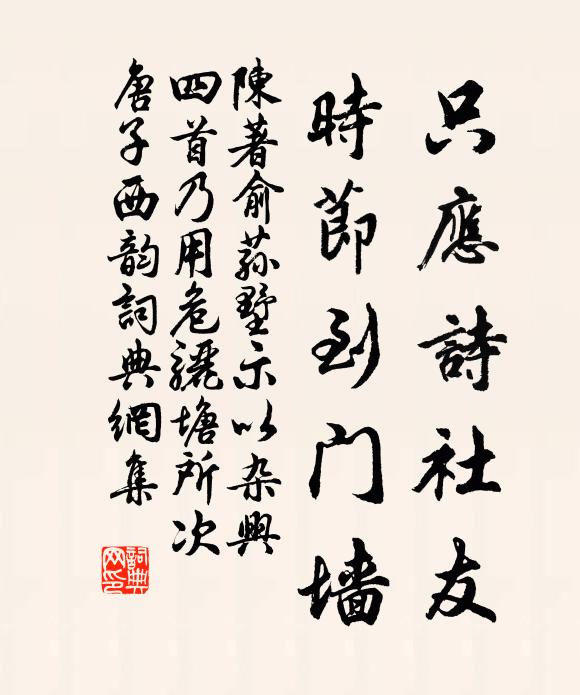 只應詩社友
時節到门墙
陳著俞荪墅示以杂興
四首乃用危驪塘所次
唐子西韵詞典網集
詞典网印